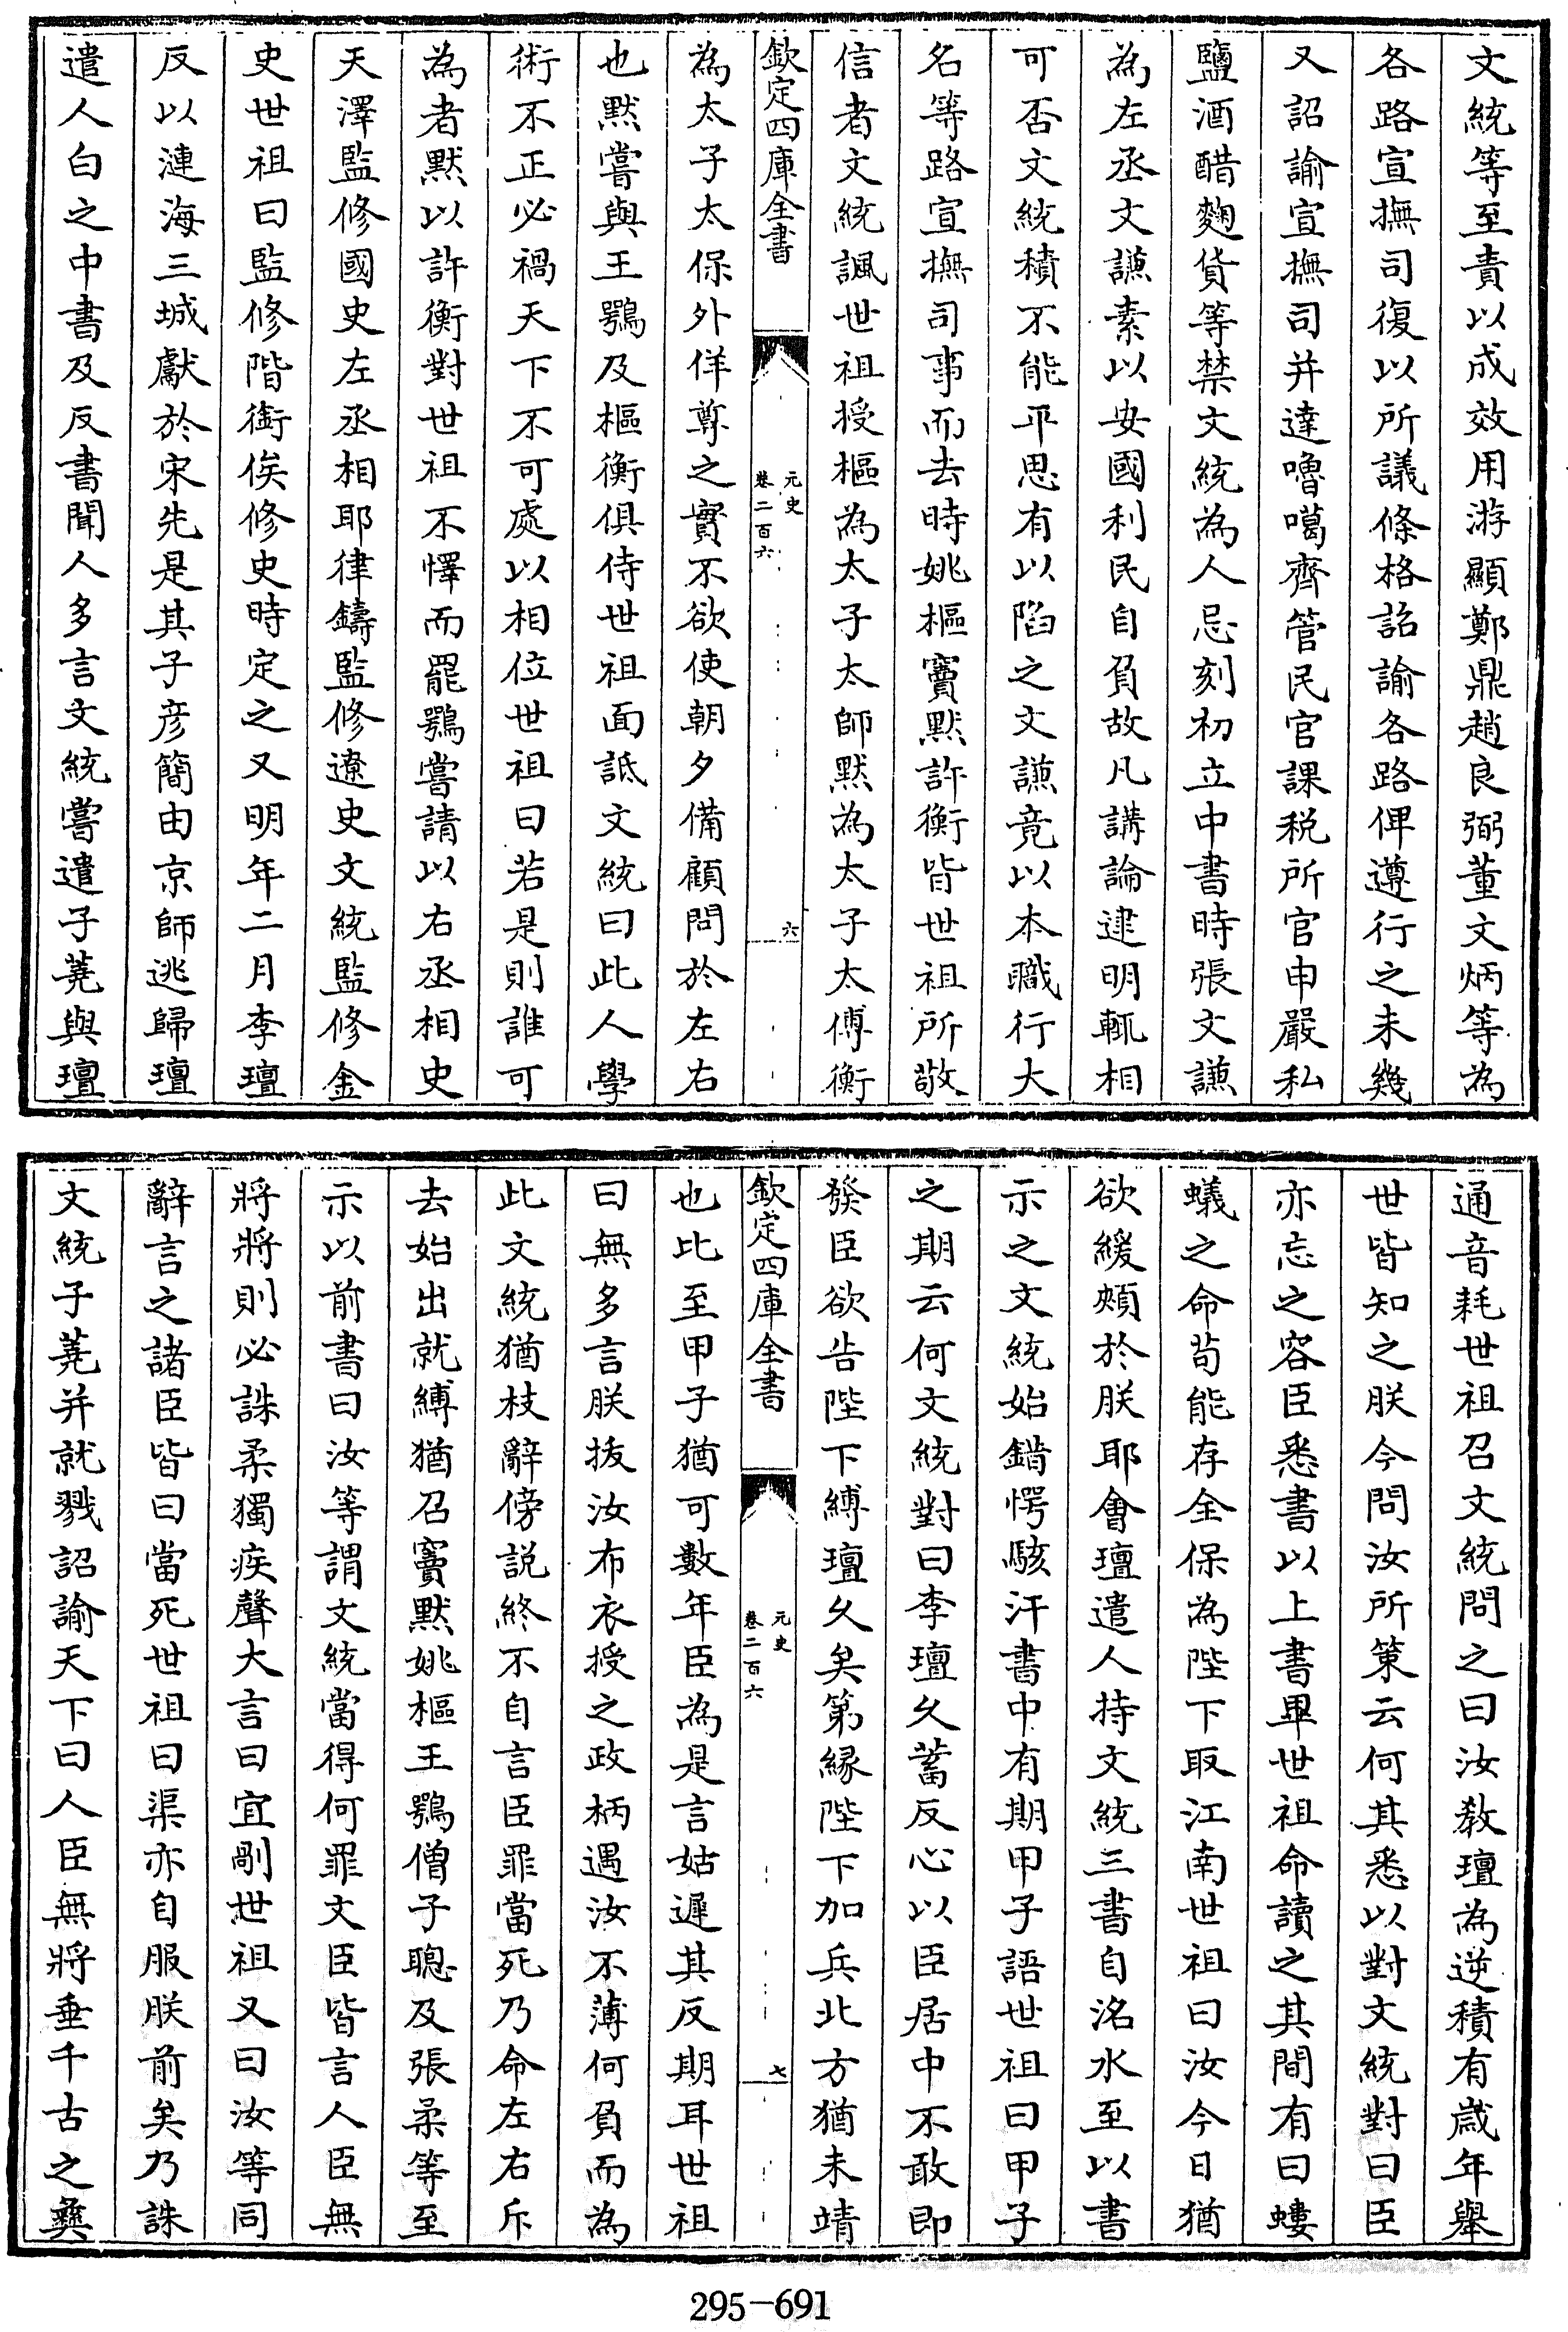 文統等至責以成效用游顯鄭鼎趙良弼董文炳等為
各路宣撫司復以所議條格詔諭各路俾遵行之未幾
又詔諭宣撫司并達嚕噶齊管民官課税所官申嚴私
鹽酒醋麴貨等禁文統為人忌刻初立中書時張文謙
為左丞文謙素以安國利民自負故凡講論建明輒相
可否文統積不能平思有以陷之文謙竟以本職行大
名等路宣撫司事而去時姚樞竇默許衡皆世祖所敬
信者文統諷世祖授樞為太子太師默為太子太傅衡
欽定四庫全書
元史
卷二百六
六
為太子太保外佯尊之實不欲使朝夕備顧問於左右
也默嘗與王鶚及樞衡俱侍世祖面詆文統曰此人學
術不正必禍天下不可處以相位世祖曰若是則誰可
為者默以許衡對世祖不懌而罷鶚嘗請以右丞相史
天澤監修國史左丞相耶律鑄監修遼史文統監修金
史世祖曰監修階銜俟修史時定之又明年二月李璮
反以漣海三城獻於宋先是其子彦簡由京師逃歸璮
遣人白之中書及反書聞人多言文統嘗遣子蕘與璮
通音耗世祖召文統問之曰汝教璮為逆積有歲年舉
世皆知之朕今問汝所策云何其悉以對文統對曰臣
亦忘之容臣悉書以上書畢世祖命讀之其間有曰螻
蟻之命苟能存全保為陛下取江南世祖曰汝今日猶
欲緩頰於朕耶會璮遣人持文統三書自洺水至以書
示之文統始錯愕駭汗書中有期甲子語世祖曰甲子
之期云何文統對曰李璮久蓄反心以臣居中不敢即
發臣欲告陛下縛璮久矣第緣陛下加兵北方猶未靖
欽定四庫全書
元史
卷二百六
七
也比至甲子猶可數年臣為是言姑遲其反期耳世祖
曰無多言朕拔汝布衣授之政柄遇汝不薄何負而為
此文統猶枝辭傍説終不自言臣罪當死乃命左右斥
去始出就縛猶召竇默姚樞王鶚僧子聰及張柔等至
示以前書曰汝等謂文統當得何罪文臣皆言人臣無
將將則必誅柔獨疾聲大言曰宜剮世祖又曰汝等同
辭言之諸臣皆曰當死世祖曰渠亦自服朕前矣乃誅
文統子蕘并就戮詔諭天下曰人臣無將垂千古之彝
295-691